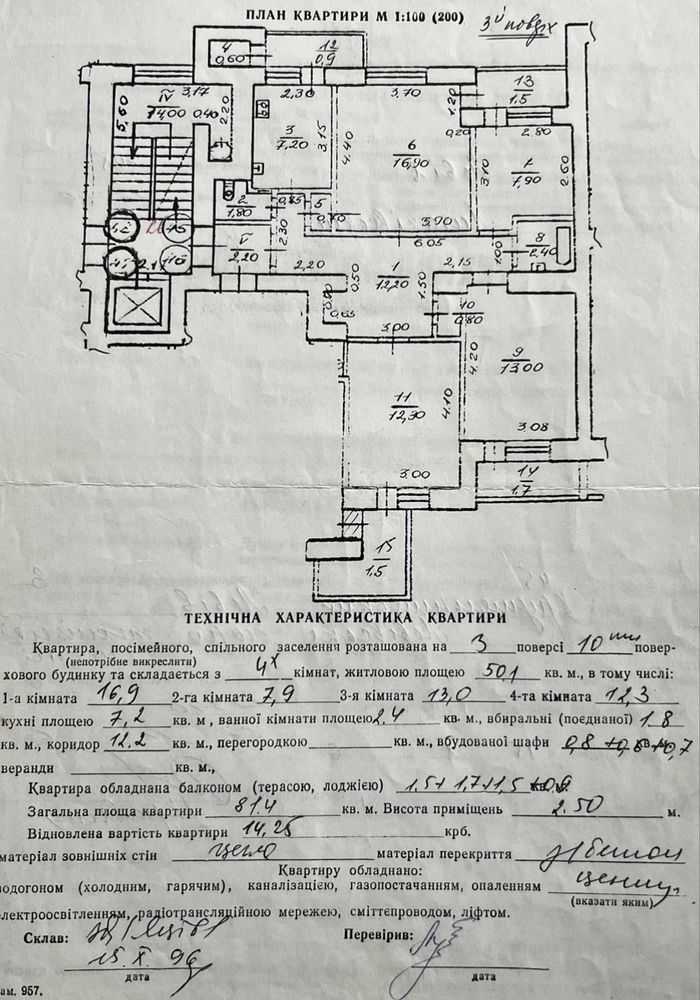 ПЛАН КВАРТИРИ М 1:100 (200)
3й поверх
4
0,60
12
0,9
13
1.5
IV
14,00
3,17
0,40
5,60
2,20
2,30
3
7,20
3,15
3,70
4,40
6
16,90
1,20
0,20
2,80
3,10
7
7,90
2,60
2
1,80
0,85
5
0,70
3,90
6,05
V
2,20
2,30
2,20
0,50
1
12,20
1,50
2,15
1,00
8
2,40
0,65
3,00
10
0,80
4,20
9
13,00
3,08
11
12,30
4,10
3,00
14
1.7
15
1.5
ТЕХНІЧНА ХАРАКТЕРИСТИКА КВАРТИРИ
Квартира, посімейного, спільного заселення розташована на 3 поверсі 10ти повер-
(непотрібне викреслити)
хового будинку та складається з 4х кімнат, житловою площею 50,1 кв. м., в тому числі:
1-а кімната 16,9 2-га кімната 7,9 3-я кімната 13,0 4-та кімната 12,3
кухні площею 7,2 кв. м, ванної кімнати площею 2.4 кв. м., вбиральні (поєднаної) 1.8
кв. м., коридор 12.2 кв. м., перегородкою кв. м., вбудованої шафи 0,8 +0,6 +0,7
веранди кв. м.,
Квартира обладнана балконом (терасою, лоджією) 1.5+ 1.7+1,5 +0,9 кв. м.
Загальна площа квартири 81.4 кв. м. Висота приміщень 2.50 м.
Відновлена вартість квартири 14,25 крб.
матеріал зовнішніх стін цегла матеріал перекриття з/бетон
Квартиру обладнано:
водогоном (холодним, гарячим), каналізацією, газопостачанням, опаленням
(вказати яким)
електроосвітленням, радіотрансляційною мережею, сміттєпроводом, ліфтом.
Склав: Перевірив:
15. X. 96
дата дата
ам. 957.